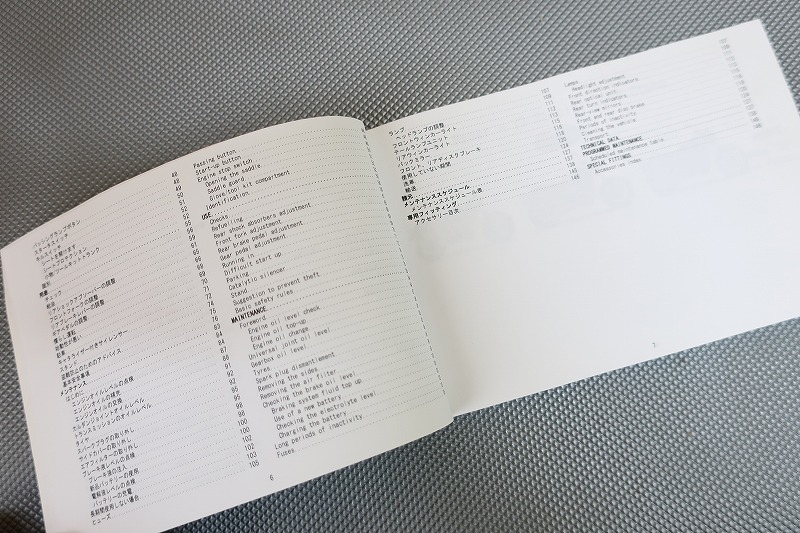 パッシングランプボタン
スタータスイッチ
キルスイッチ
シートを開けます
シートプロテクション
小物/ツールキットトランク
識別
用途
チェック
給油
リアショックアブソーバーの調整
フロントフォークの調整
リアブレーキレバーの調整
ギアペダルの調整
慣らし運転
始動性が悪い
駐車
キャタライザー付きサイレンサー
スタンド
盗難防止のためのアドバイス
基本安全事項
メンテナンス
はじめに
エンジンオイルレベルの点検
エンジンオイルの補充
エンジンオイルの交換
カルダンジョイントオイルレベル
トランスミッションのオイルレベル
タイヤ
スパークプラグの取り外し
サイドカバーの取り外し
エアフィルターの取り外し
ブレーキ液レベルの点検
ブレーキ液の注入
新品バッテリーの使用
電解液レベルの点検
バッテリーの充電
長期間使用しない場合
ヒューズ
Passing button
Start-up button
Engine stop switch
Opening the saddle
Saddle guard
Glove/tool kit compartment
Identification
USE
Checks
Refuelling
Rear shock absorbers adjustment
Front fork adjustment
Rear brake pedal adjustment
Gear pedal adjustment
Running in
Difficult start up
Parking
Catalytic silencer
Stand
Suggestion to prevent theft
Basic safety rules
MAINTENANCE
Foreword
Engine oil level check
Engine oil top-up
Engine oil change
Universal joint oil level
Gearbox oil level
Tyres
Spark plug dismantlement
Removing the sides
Removing the air filter
Checking the brake oil level
Braking system fluid top up
Use of a new battery
Checking the electrolyte level
Charging the battery
Long periods of inactivity
Fuses
6
ランプ
ヘッドランプの調整
フロントウィンカーライト
テールランプユニット
リアウィンカーライト
バックミラー
フロント/リアディスクブレーキ
使用していない期間
洗車
輸送
諸元
メンテナンススケジュール
メンテナンススケジュール表
専用フィッティング
アクセサリー目次
Lamps
Headlight adjustment
Front direction indicators
Rear optical unit
Rear turn indicators
Rear-view mirrors
Front and rear disc brake
Periods of inactivity
Cleaning the vehicle
Transport
TECHNICAL DATA
PROGRAMMED MAINTENANCE
Scheduled maintenance table
SPECIAL FITTINGS
Accessories index
7